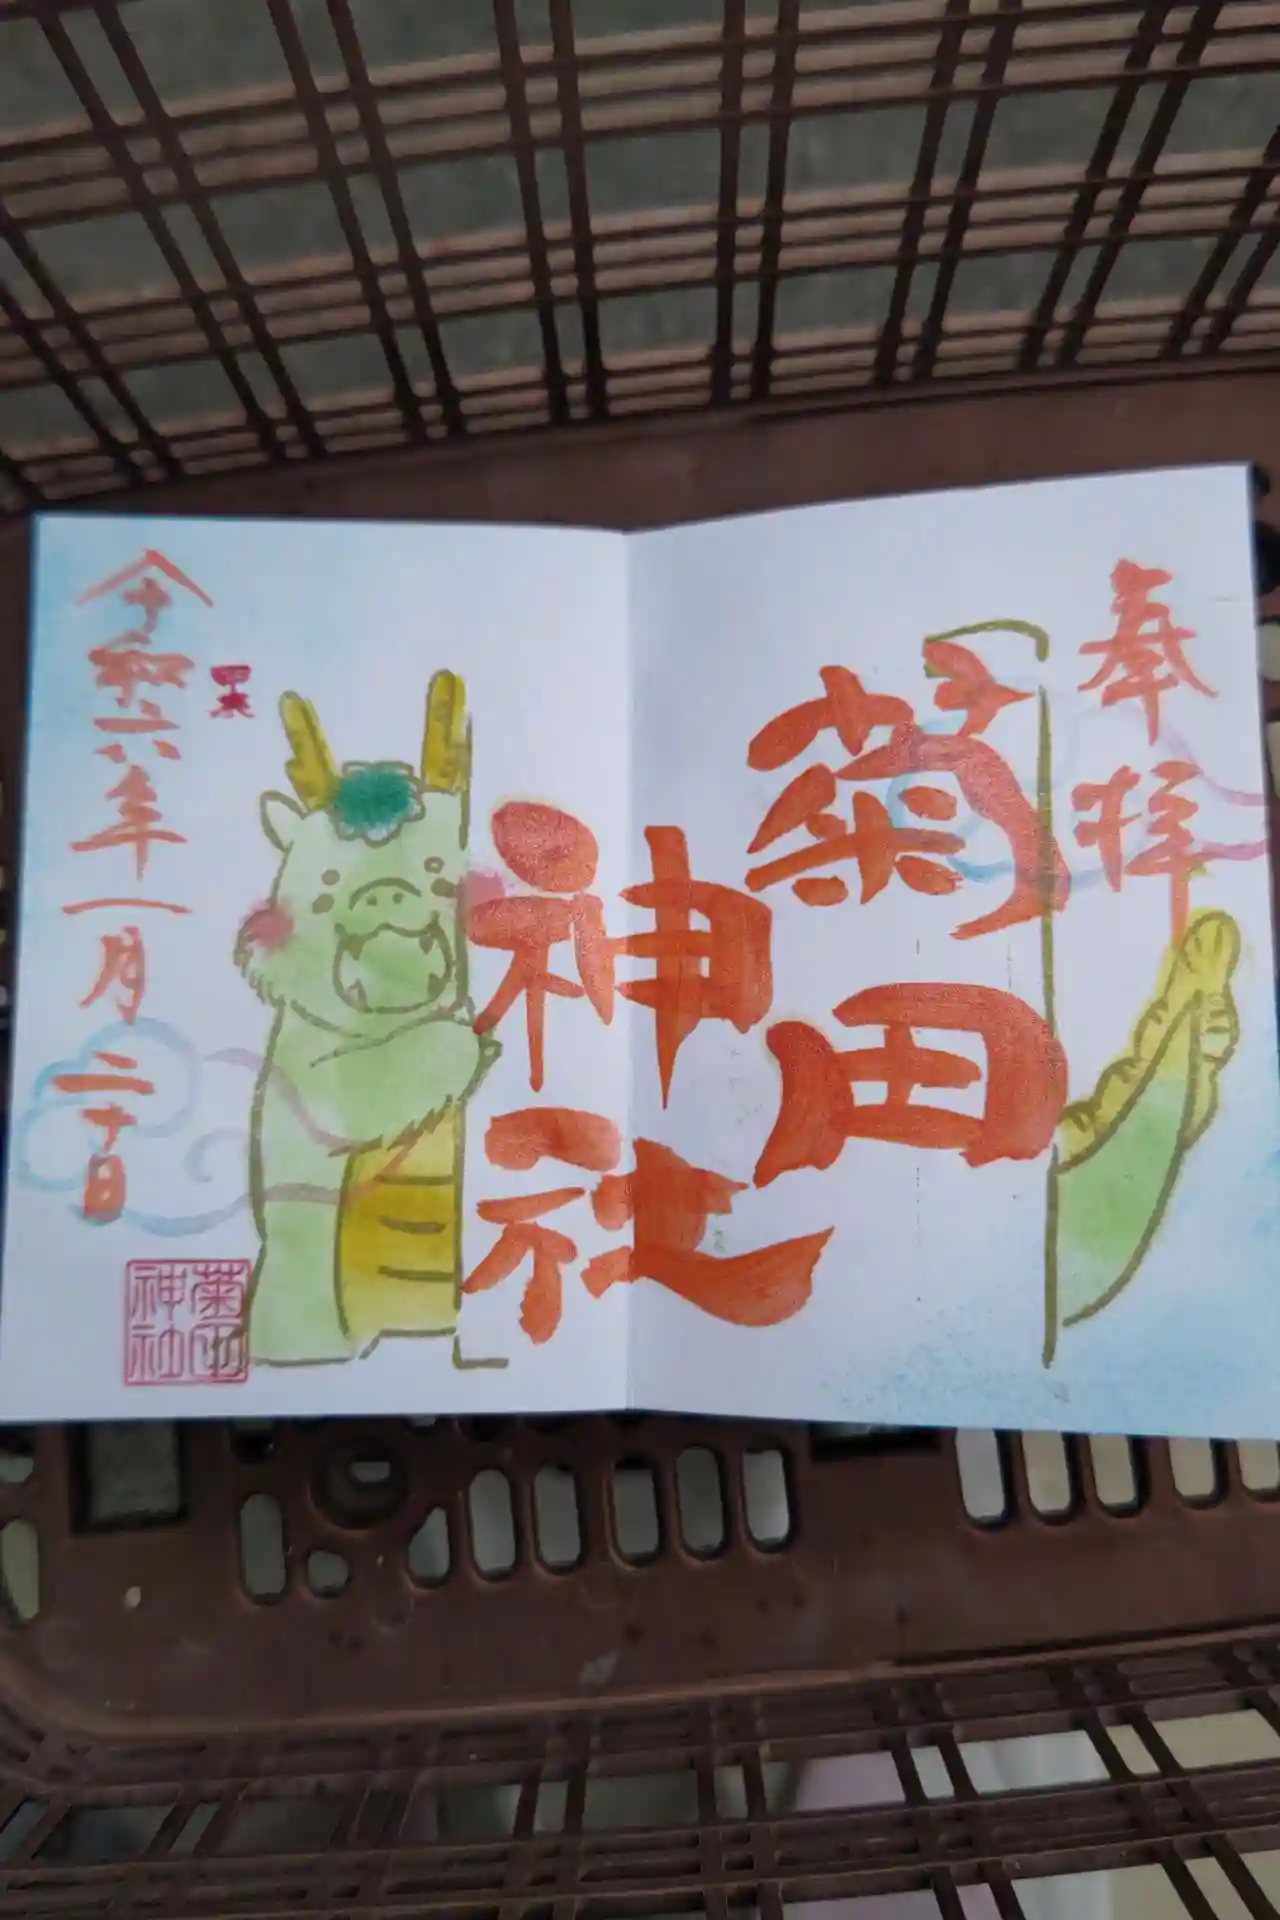 奉拝
菊田
神社
果
令和六年一月二十日
菊田
神社